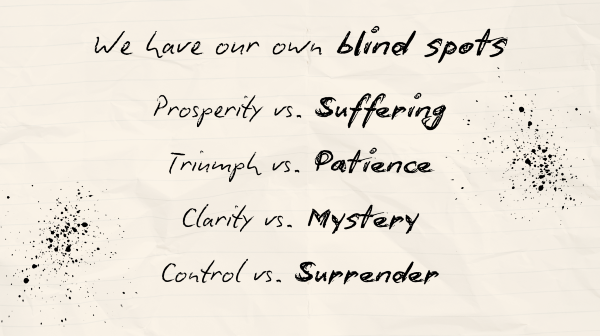 We have our own blind spots
Prosperity vs. Suffering
Triumph vs. Patience
Clarity vs. Mystery
Control vs. Surrender